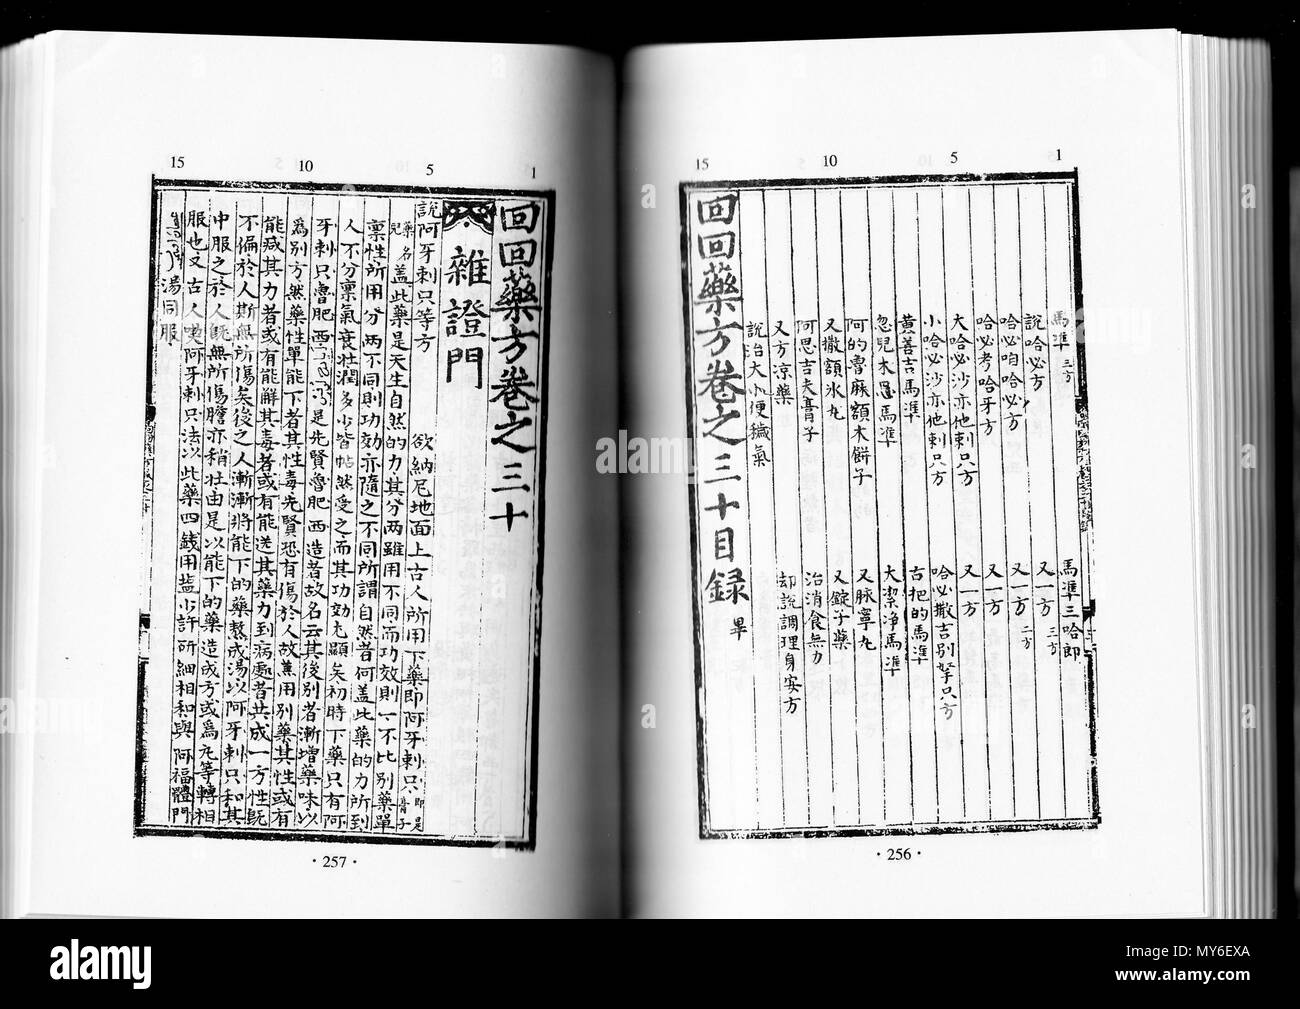 1
5
10
15
馬準 三方
馬準三哈郎
說哈必方
又一方 三方
哈必咱哈必方
又一方 二方
哈必考哈牙方
又一方
大哈必沙亦他剌只方
又一方
小哈必沙亦他剌只方
哈必撒吉別拏只方
黄善吉馬準
古把的馬準
忽兒木思馬準
大潔淨馬準
阿的魯麻額木餅子
又脉寧丸
又撒額氷丸
又錠子藥
阿思吉夫膏子
治消食無力
又方凉藥
却說調理身安方
說治大小便穢氣
回回藥方卷之三十目録 畢
·256·
1
5
10
15
回回藥方卷之三十
雜證門
說阿牙剌只等方
欲納尼地面上古人所用下藥即阿牙剌只 即是膏子
藥名兒 盖此藥是天生自然的力其分兩雖用不同而功效則一不比别藥單
禀性所用分兩不同則功効亦隨之不同所謂自然者何盖此藥的力所到
人不分禀氣衰壯潤多少皆帖然受之而其功効充顯矣初時下藥只有阿
牙剌只魯肥西 是先賢魯肥西造者故名云其後别者漸增藥味以
爲别方然藥性單能下者其性毒先賢恐有傷於人故蕙用别藥其性或有
能㽽其力者或有能觧其毒者或有能送其藥力到病處者共成一方性既
不偏於人斯無所傷矣後之人漸漸將能下的藥熬成湯以阿牙剌只和其
中服之於人既無所傷膽亦稍壯由是以能下的藥造成方或爲丸等轉相
服也又古人喫阿牙剌只法以此藥四錢用盐少許所細相和與阿福體門
湯同服
·257·
alamy
MY6EXA
www.alamy.com